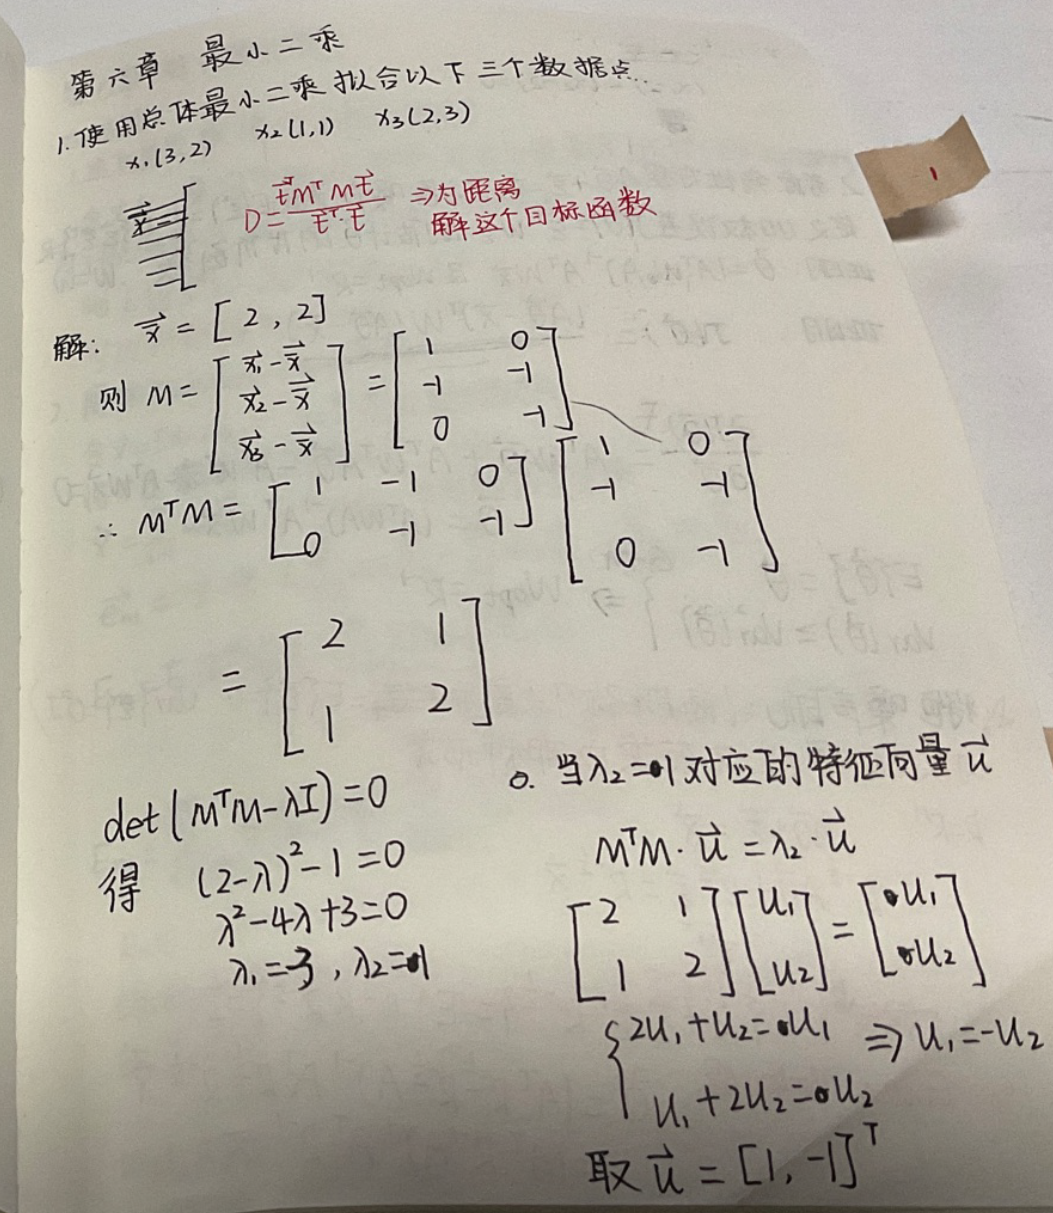 第六章 最小二乘
1. 使用总体最小二乘拟合以下三个数据点
x₁(3,2) x₂(1,1) x₃(2,3)
D = t⃗ᵀMᵀMt⃗ / t⃗ᵀ·t⃗ ⇒为距离
解这个目标函数
解: x⃗ = [2, 2]
则 M = [x⃗₁ - x̄⃗; x⃗₂ - x̄⃗; x⃗₃ - x̄⃗] = [1 0; -1 -1; 0 -1]
∴ MᵀM = [1 -1 0; 0 -1 -1] [1 0; -1 -1; 0 -1]
= [2 1; 1 2]
det(MᵀM - λI) = 0
得 (2-λ)² - 1 = 0
λ² - 4λ + 3 = 0
λ₁ = 3, λ₂ = 1
当λ₂ = 1对应的特征向量u⃗
MᵀM · u⃗ = λ₂ · u⃗
[2 1; 1 2] [u₁; u₂] = [u₁; u₂]
{2u₁ + u₂ = u₁ ⇒ u₁ = -u₂
u₁ + 2u₂ = u₂
取 u⃗ = [1, -1]ᵀ